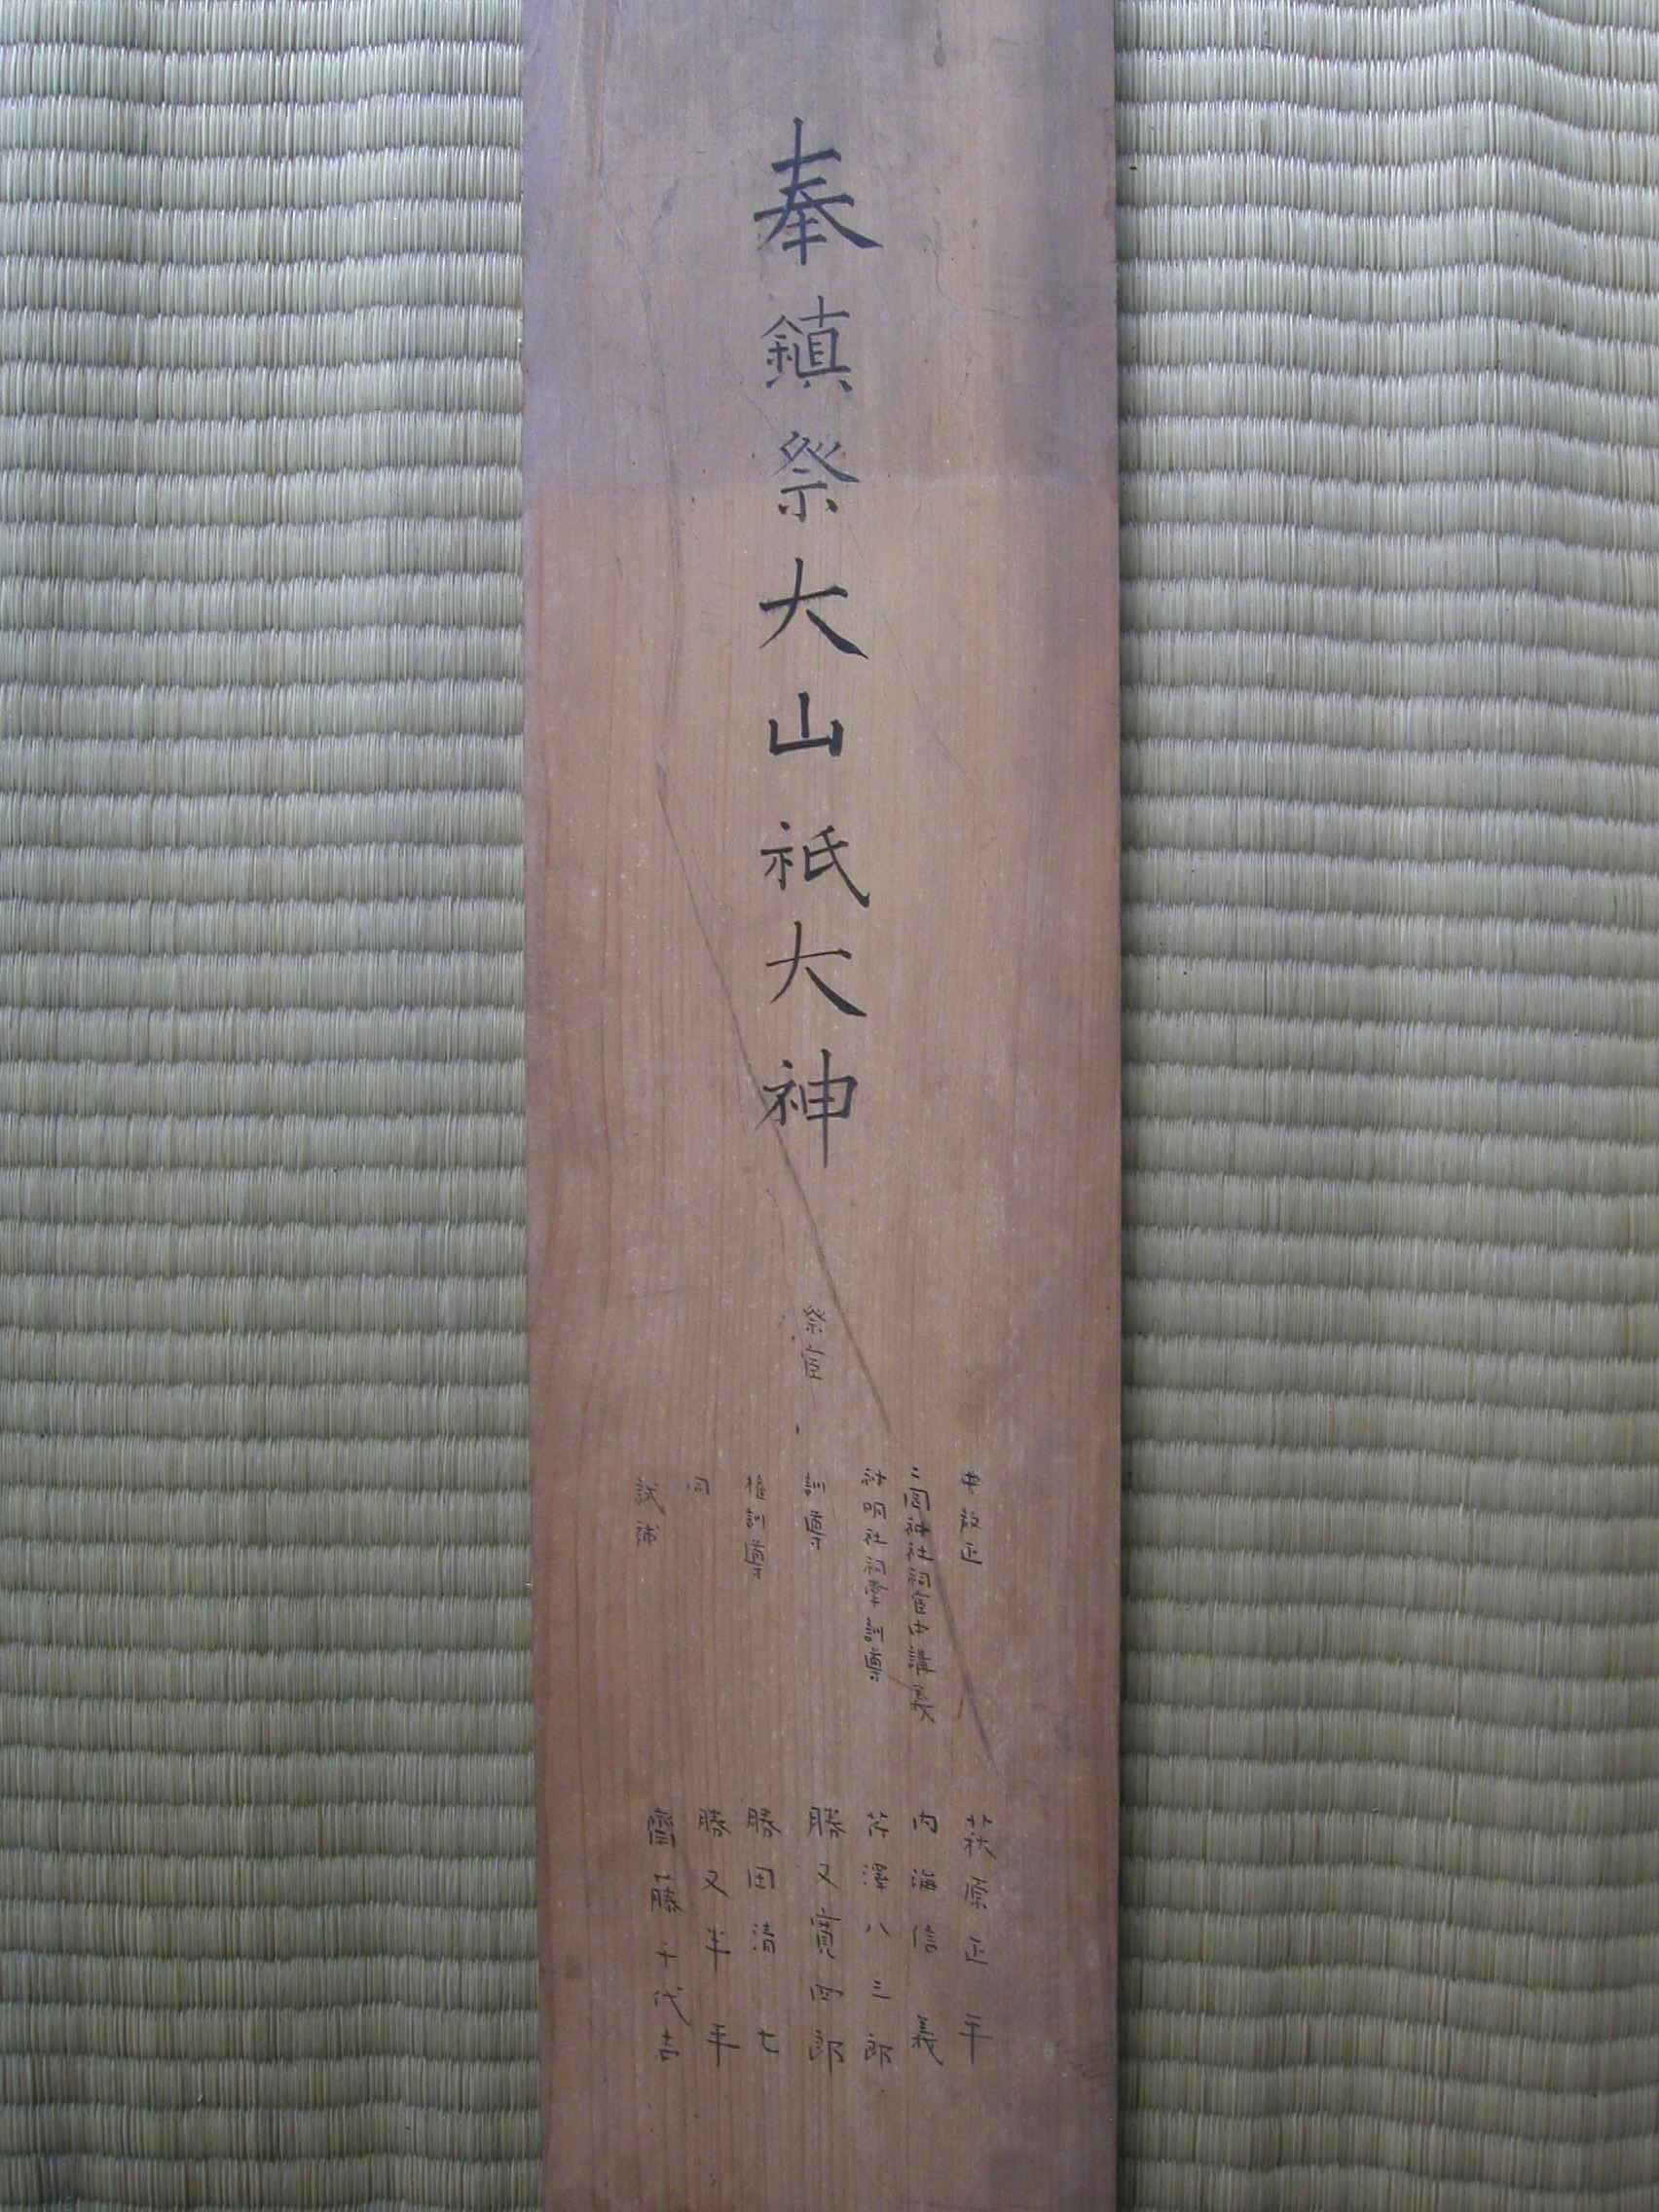 奉鎮祭大山祇大神
祭官
教正 萩原正平
二岡神社祠官中講義 内海信義
神明社祠掌訓導 芹澤八三郎
訓導 勝又寛四郎
権訓導 勝田清七
同 勝又半平
試補 齋藤千代吉